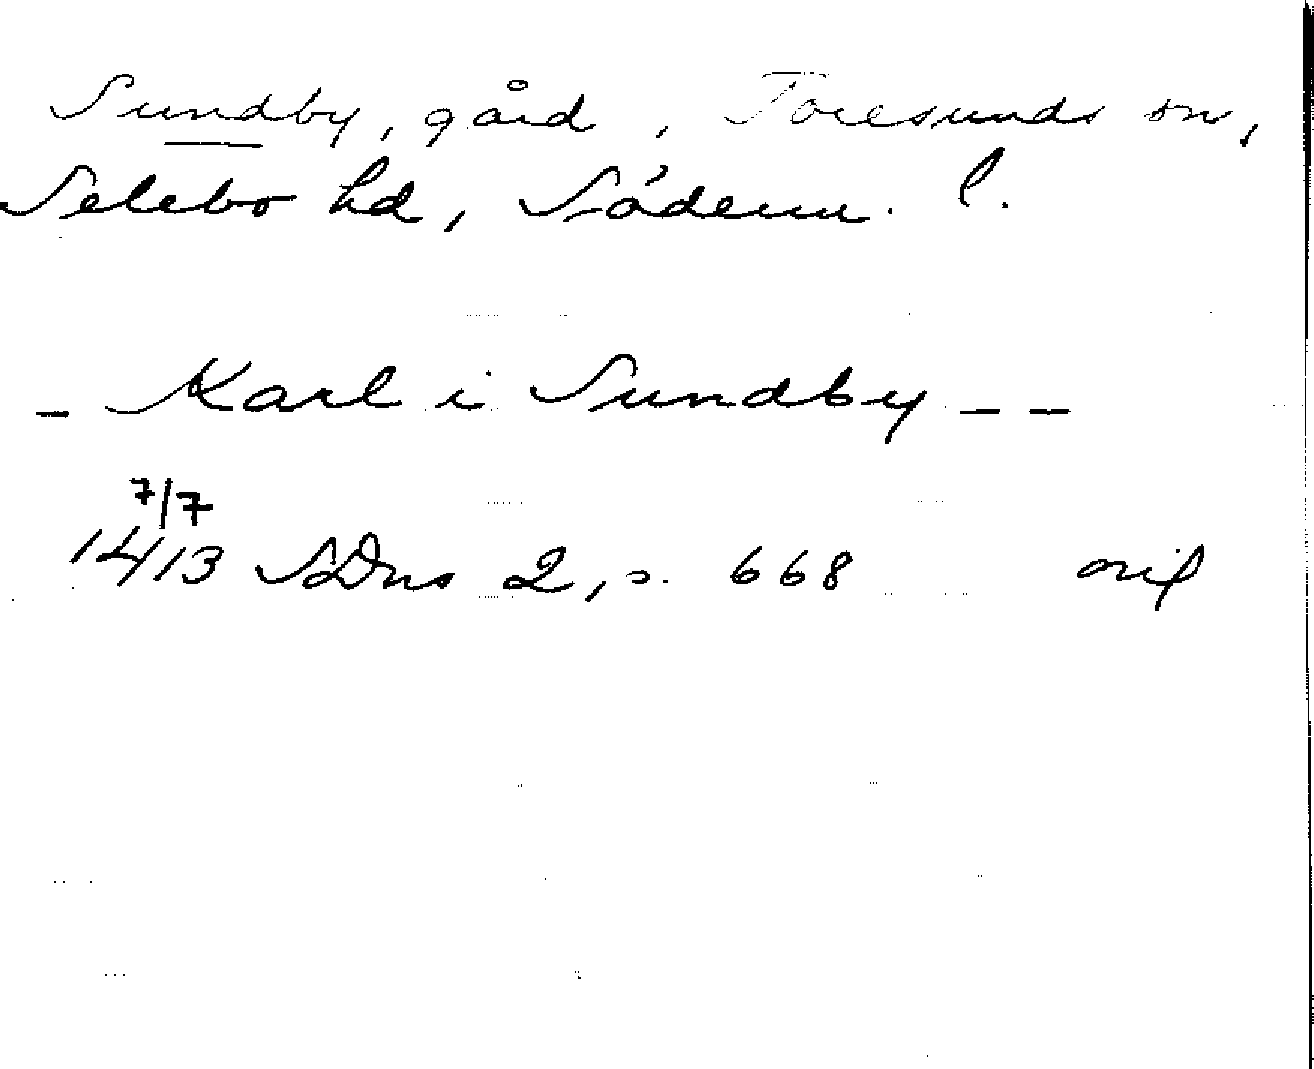 Sundby, gård, Toresunds sn,
Selebo hd, Söderm. l.
- Karl i Sundby - -
7/7
1413 SDns 2, s. 668 orig